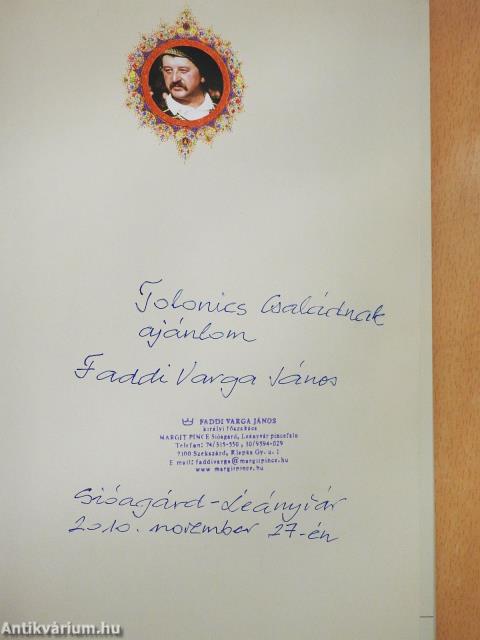 Tolonics Családnak
ajánlom
Faddi Varga János
FADDI VARGA JÁNOS
királyi főszakács
MARGIT PINCE Sióagárd, Leányvár pincefalu
Telefon: 74/315-550 , 30/9594-029
7100 Szekszárd, Klapka Gy. u. 1
E mail: faddivarga@margitpince.hu
www margitpince.hu
Sióagárd-Leányvár
2010. november 27-én
Antikvárium.hu